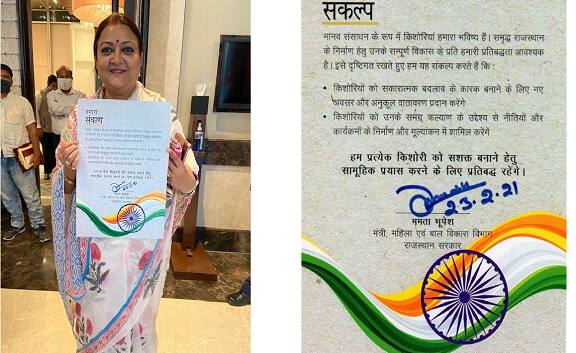 हमारा
संकल्प
हम प्रत्येक किशोरी को सशक्त बनाने हेतु
सामूहिक प्रयास करने के लिए प्रतिबद्ध रहेंगे।
23.2.21
संकल्प
मानव संसाधन के रूप में किशोरियां हमारा भविष्य हैं। समृद्ध राजस्थान
के निर्माण हेतु उनके सम्पूर्ण विकास के प्रति हमारी प्रतिबद्धता आवश्यक
है। इसे दृष्टिगत रखते हुए हम यह संकल्प करते हैं कि :
• किशोरियों को सकारात्मक बदलाव के कारक बनाने के लिए नए
अवसर और अनुकूल वातावरण प्रदान करेंगे
• किशोरियों को उनके समग्र कल्याण के उद्देश्य से नीतियों और
कार्यक्रमों के निर्माण और मूल्यांकन में शामिल करेंगे
हम प्रत्येक किशोरी को सशक्त बनाने हेतु
सामूहिक प्रयास करने के लिए प्रतिबद्ध रहेंगे।
23.2.21
ममता भूपेश
मंत्री, महिला एवं बाल विकास विभाग
राजस्थान सरकार